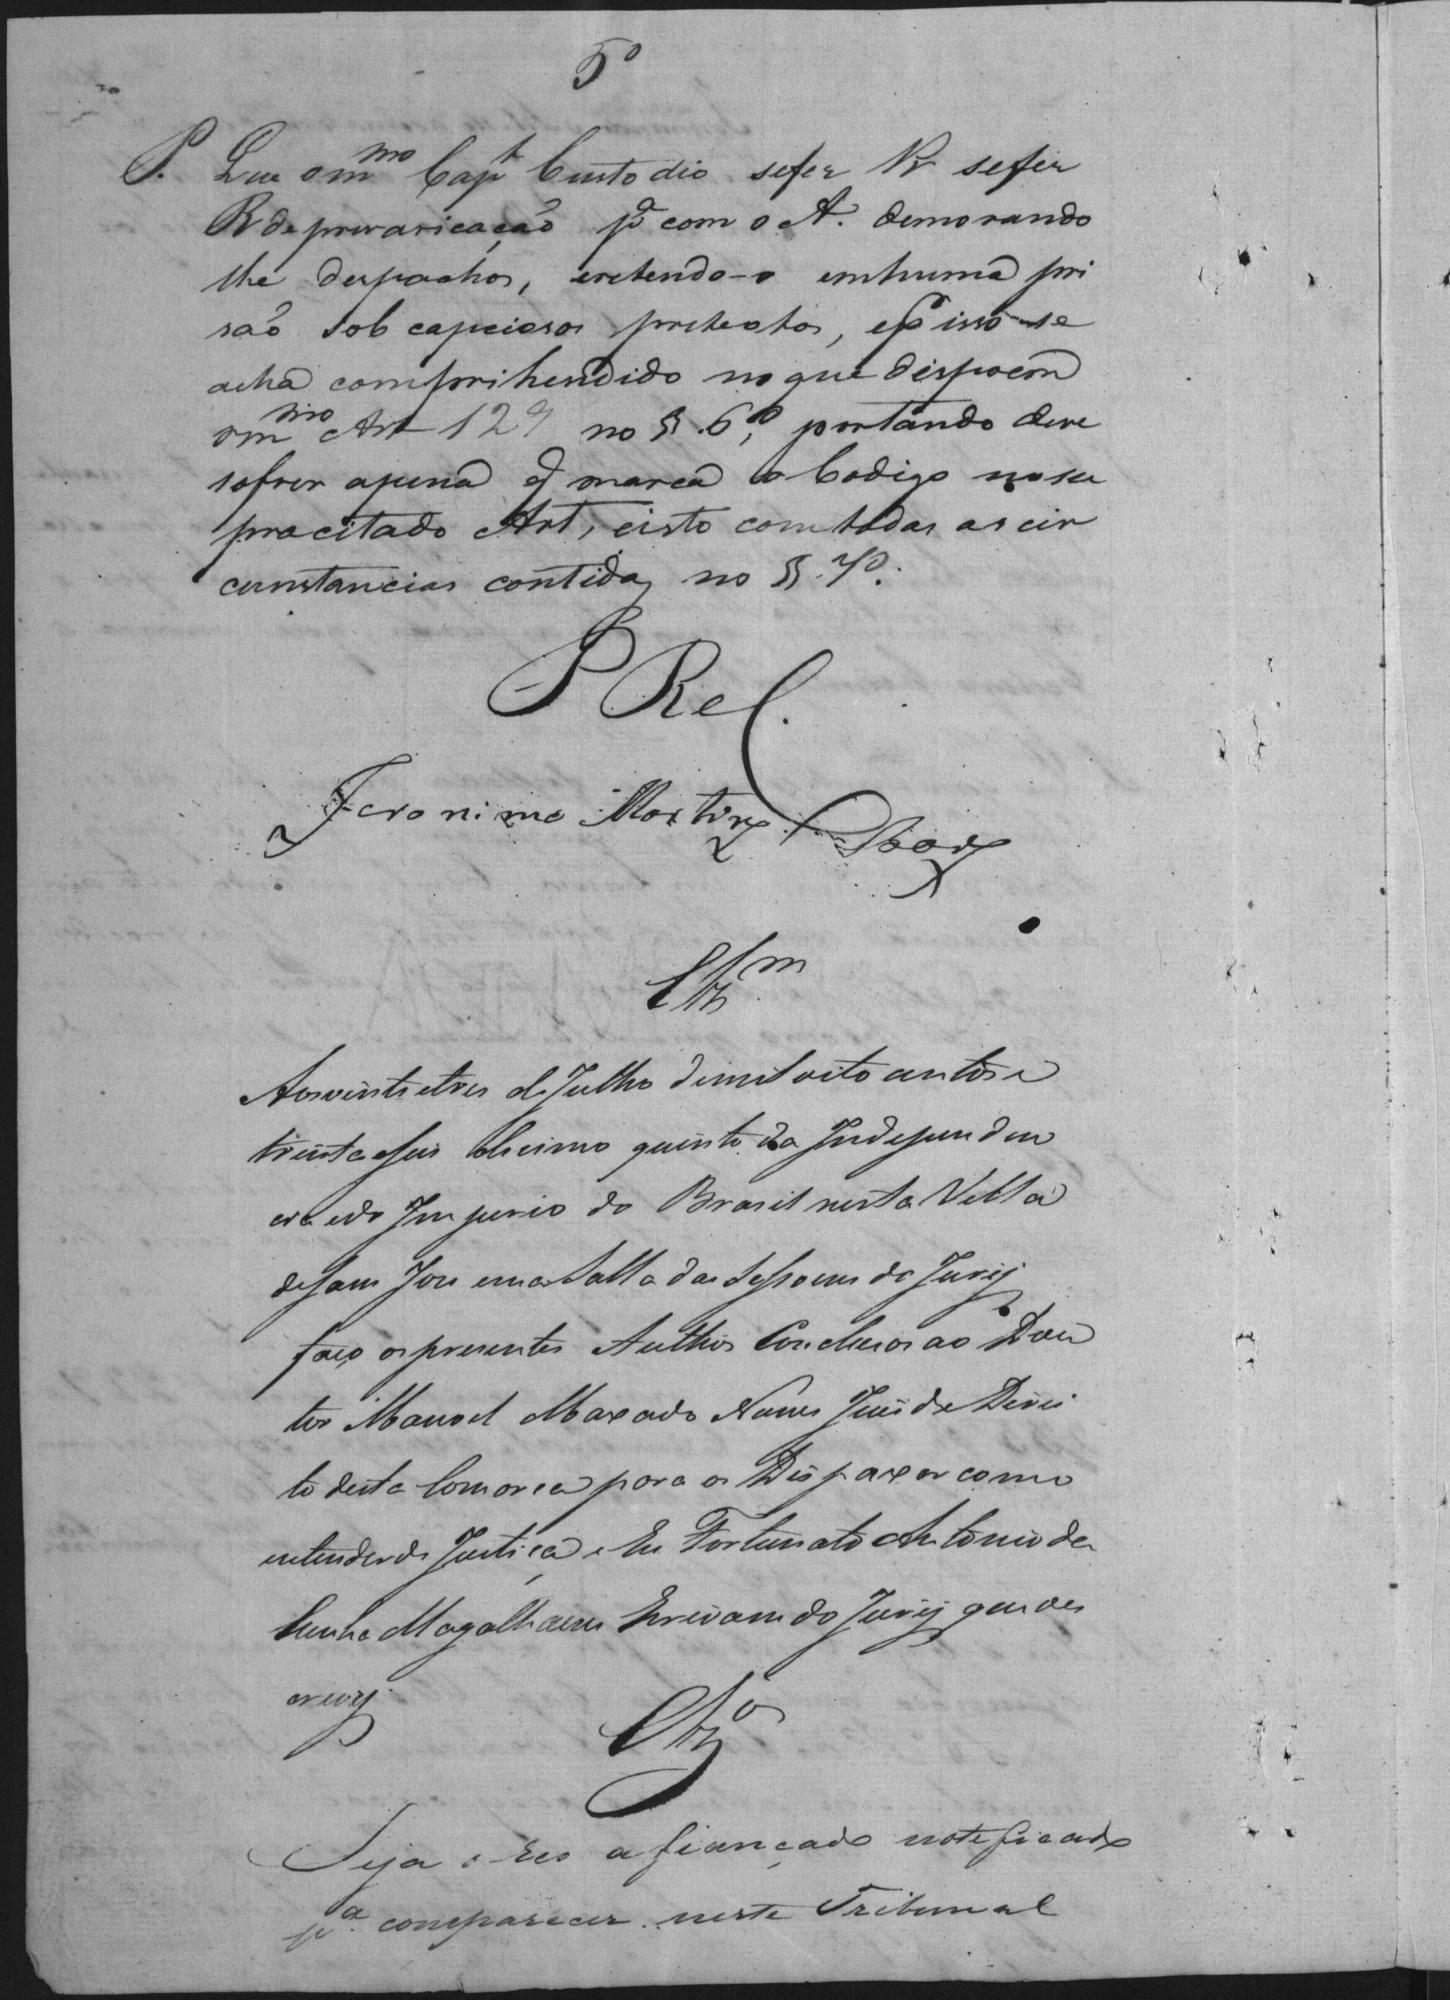 5º
P. Que o mmo Capt Custodio sefez Rº sefez
R de prevaricação pª com o A. demorando
lhe despachos, eretendo-o emhuma pri
são sob capciosos pretextos, epr isso se
acha comprihendido no que dispoem
ommo Art 129 no § .6º, portando deve
sofrer apena q marca o Codigo nosu
pracitado Art, eisto comtodas as cir
cunstancias contidas no § .7º.
P Rel.
Jeronimo Martins
Clzm
Aosvinteetres deJulho demil oito centos e
trintaeseis decimo quinto da Independen
cia edo Imperio do Brasil nesta Villa
deSam Jose ema Salla das Sessoens do Jurij
faço os presentes Authos Conclusos ao Dou
tor Manoel Maxado Nunes Juis de Direi
to desta Comarca para os Dispaxar como
entender de Justiça, e Eu Fortunato Antonio da
Cunha Magalhaens Escrivam do Jurij que oes
crevij
Clzos
Seja o Reo afiançado noteficado
pª comparecer neste Tribunal